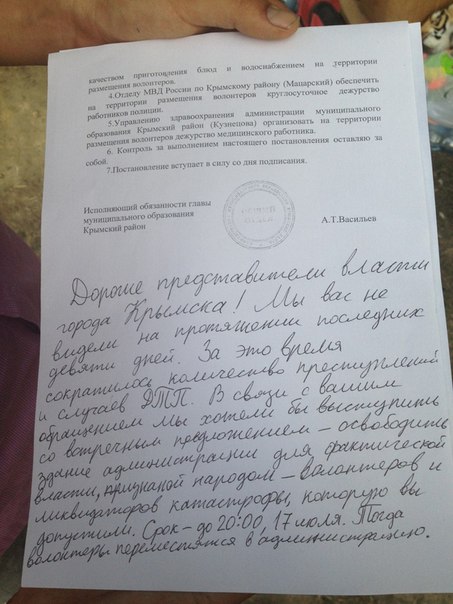 качеством приготовления блюд и водоснабжением на территории
размещения волонтеров.
4.Отделу МВД России по Крымскому району (Мацарский) обеспечить
на территории размещения волонтеров круглосуточное дежурство
работников полиции.
5.Управлению здравоохранения администрации муниципального
образования Крымский район (Кузнецова) организовать на территории
размещения волонтеров дежурство медицинского работника.
6. Контроль за выполнением настоящего постановления оставляю за
собой.
7.Постановление вступает в силу со дня подписания.
Исполняющий обязанности главы
муниципального образования
Крымский район
А.Т.Васильев
Дорогие представители власти
города Крымска! Мы вас не
видели на протяжении последних
девяти дней. За это время
сократилось количество преступлений
и случаев ДТП. В связи с вашим
обращением мы хотели бы выступить
со встречным предложением – освободить
здание администрации для фактической
власти, признаной народом – волонтеров и
ликвидаторов катастрофы, которую вы
допустили. Срок - до 20:00, 17 июля. Тогда
волонтеры переместятся в администрацию.